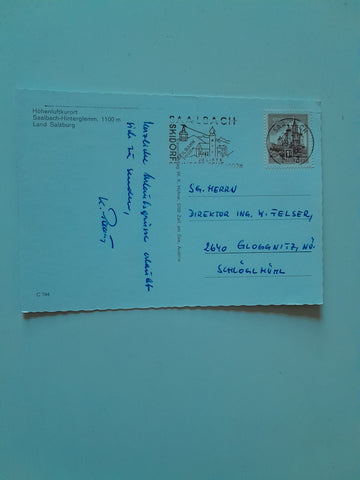 Höhenluftkurort
Saalbach-Hinterglemm, 1100 m
Land Salzburg
herzliche Urlaubsgrüsse erlaubt
sich zu senden,
C 744
SAALBACH
SKIDORF
SG. HERRN
DIREKTOR ING. W. TELSER,
2640 GLOGGNITZ, NÖ.
SCHLÖGLMÜHL